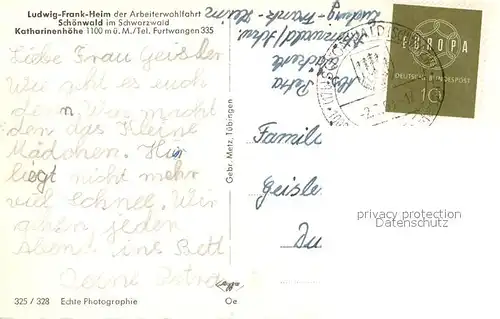 Ludwig-Frank-Heim der Arbeiterwohlfahrt
Schönwald im Schwarzwald
Katharinenhöhe 1100 m ü. M./Tel. Furtwangen 335
Liebe Frau Geisler
Wie geht es euch
den das Kleine
Mädchen. Hir
liegt nicht mehr
viel Schnee. Wir
gehen jeden
Abend ins Bett
Deine Petra
325 / 328 Echte Photographie
Gebr. Metz, Tübingen
Oe
Petra
Ludwig-Frank-Heim
EUROPA
DEUTSCHE BUNDESPOST
10
Familie
Geisle
Du
privacy protection
Datenschutz